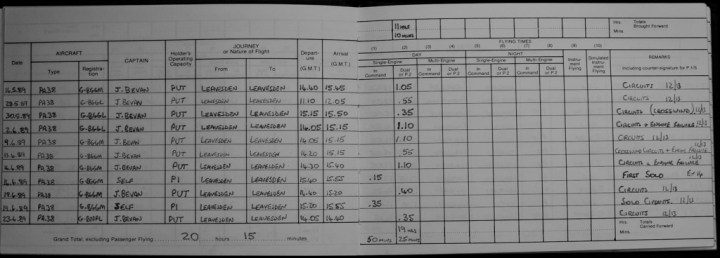 11 HRS
10 MINS
Hrs. Totals
Mins. Brought Forward
Date
AIRCRAFT
Type
Registration
CAPTAIN
Holder's Operating Capacity
JOURNEY
or Nature of Flight
From To
Departure (G.M.T.)
Arrival (G.M.T.)
FLYING TIMES
(1) (2) (3) (4) (5) (6) (7) (8) (9) (10)
DAY NIGHT
Single-Engine Multi-Engine Single-Engine Multi-Engine
In Command Dual or P.2 In Command Dual or P.2 In Command Dual or P.2 In Command Dual or P.2
Instrument Flying
Simulated Instrument Flying
REMARKS
Including counter-signature for P.1/S
PA38 G-BGGM J. BEVAN PUT LEAVESDEN LEAVESDEN 14.40 15.45 1.05 CIRCUITS 12/13
PA38 G-BGGL J. BEVAN PUT LEAVESDEN LEAVESDEN 11.10 12.05 .55 CIRCUITS 12/13
PA38 G-BGGL J. BEVAN PUT LEAVESDEN LEAVESDEN 15.15 15.50 .35 CIRCUITS (CROSSWIND) 12/13
PA38 G-BGGL J. BEVAN PUT LEAVESDEN LEAVESDEN 14.05 15.15 1.10 CIRCUITS + ENGINE FAILURE 12/13
PA38 G-BGGM J. BEVAN PUT LEAVESDEN LEAVESDEN 14.05 15.15 1.10 CIRCUITS 12/13
PA38 G-BGGM J. BEVAN PUT LEAVESDEN LEAVESDEN 14.20 15.15 .55 12/13
PA38 G-BGGM J. BEVAN PUT LEAVESDEN LEAVESDEN 14.30 15.40 1.10 CIRCUITS & ENGINE FAILURE 12/13
PA38 G-BGGM SELF P1 LEAVESDEN LEAVESDEN 15.40 15.55 .15 FIRST SOLO Ex 14
PA38 G-BGGM J. BEVAN PUT LEAVESDEN LEAVESDEN 15.20 .40 CIRCUITS 12/13
PA38 G-BGGM SELF P1 LEAVESDEN LEAVESDEN 15.20 15.55 .35 SOLO CIRCUITS 12/13
PA38 J. BEVAN PUT LEAVESDEN LEAVESDEN 14.05 14.40 .35 CIRCUITS 12/13
Grand Total, excluding Passenger Flying 20 hours 15 minutes
50 MINS
19 HRS
25 MINS
Hrs. Totals
Mins. Carried Forward